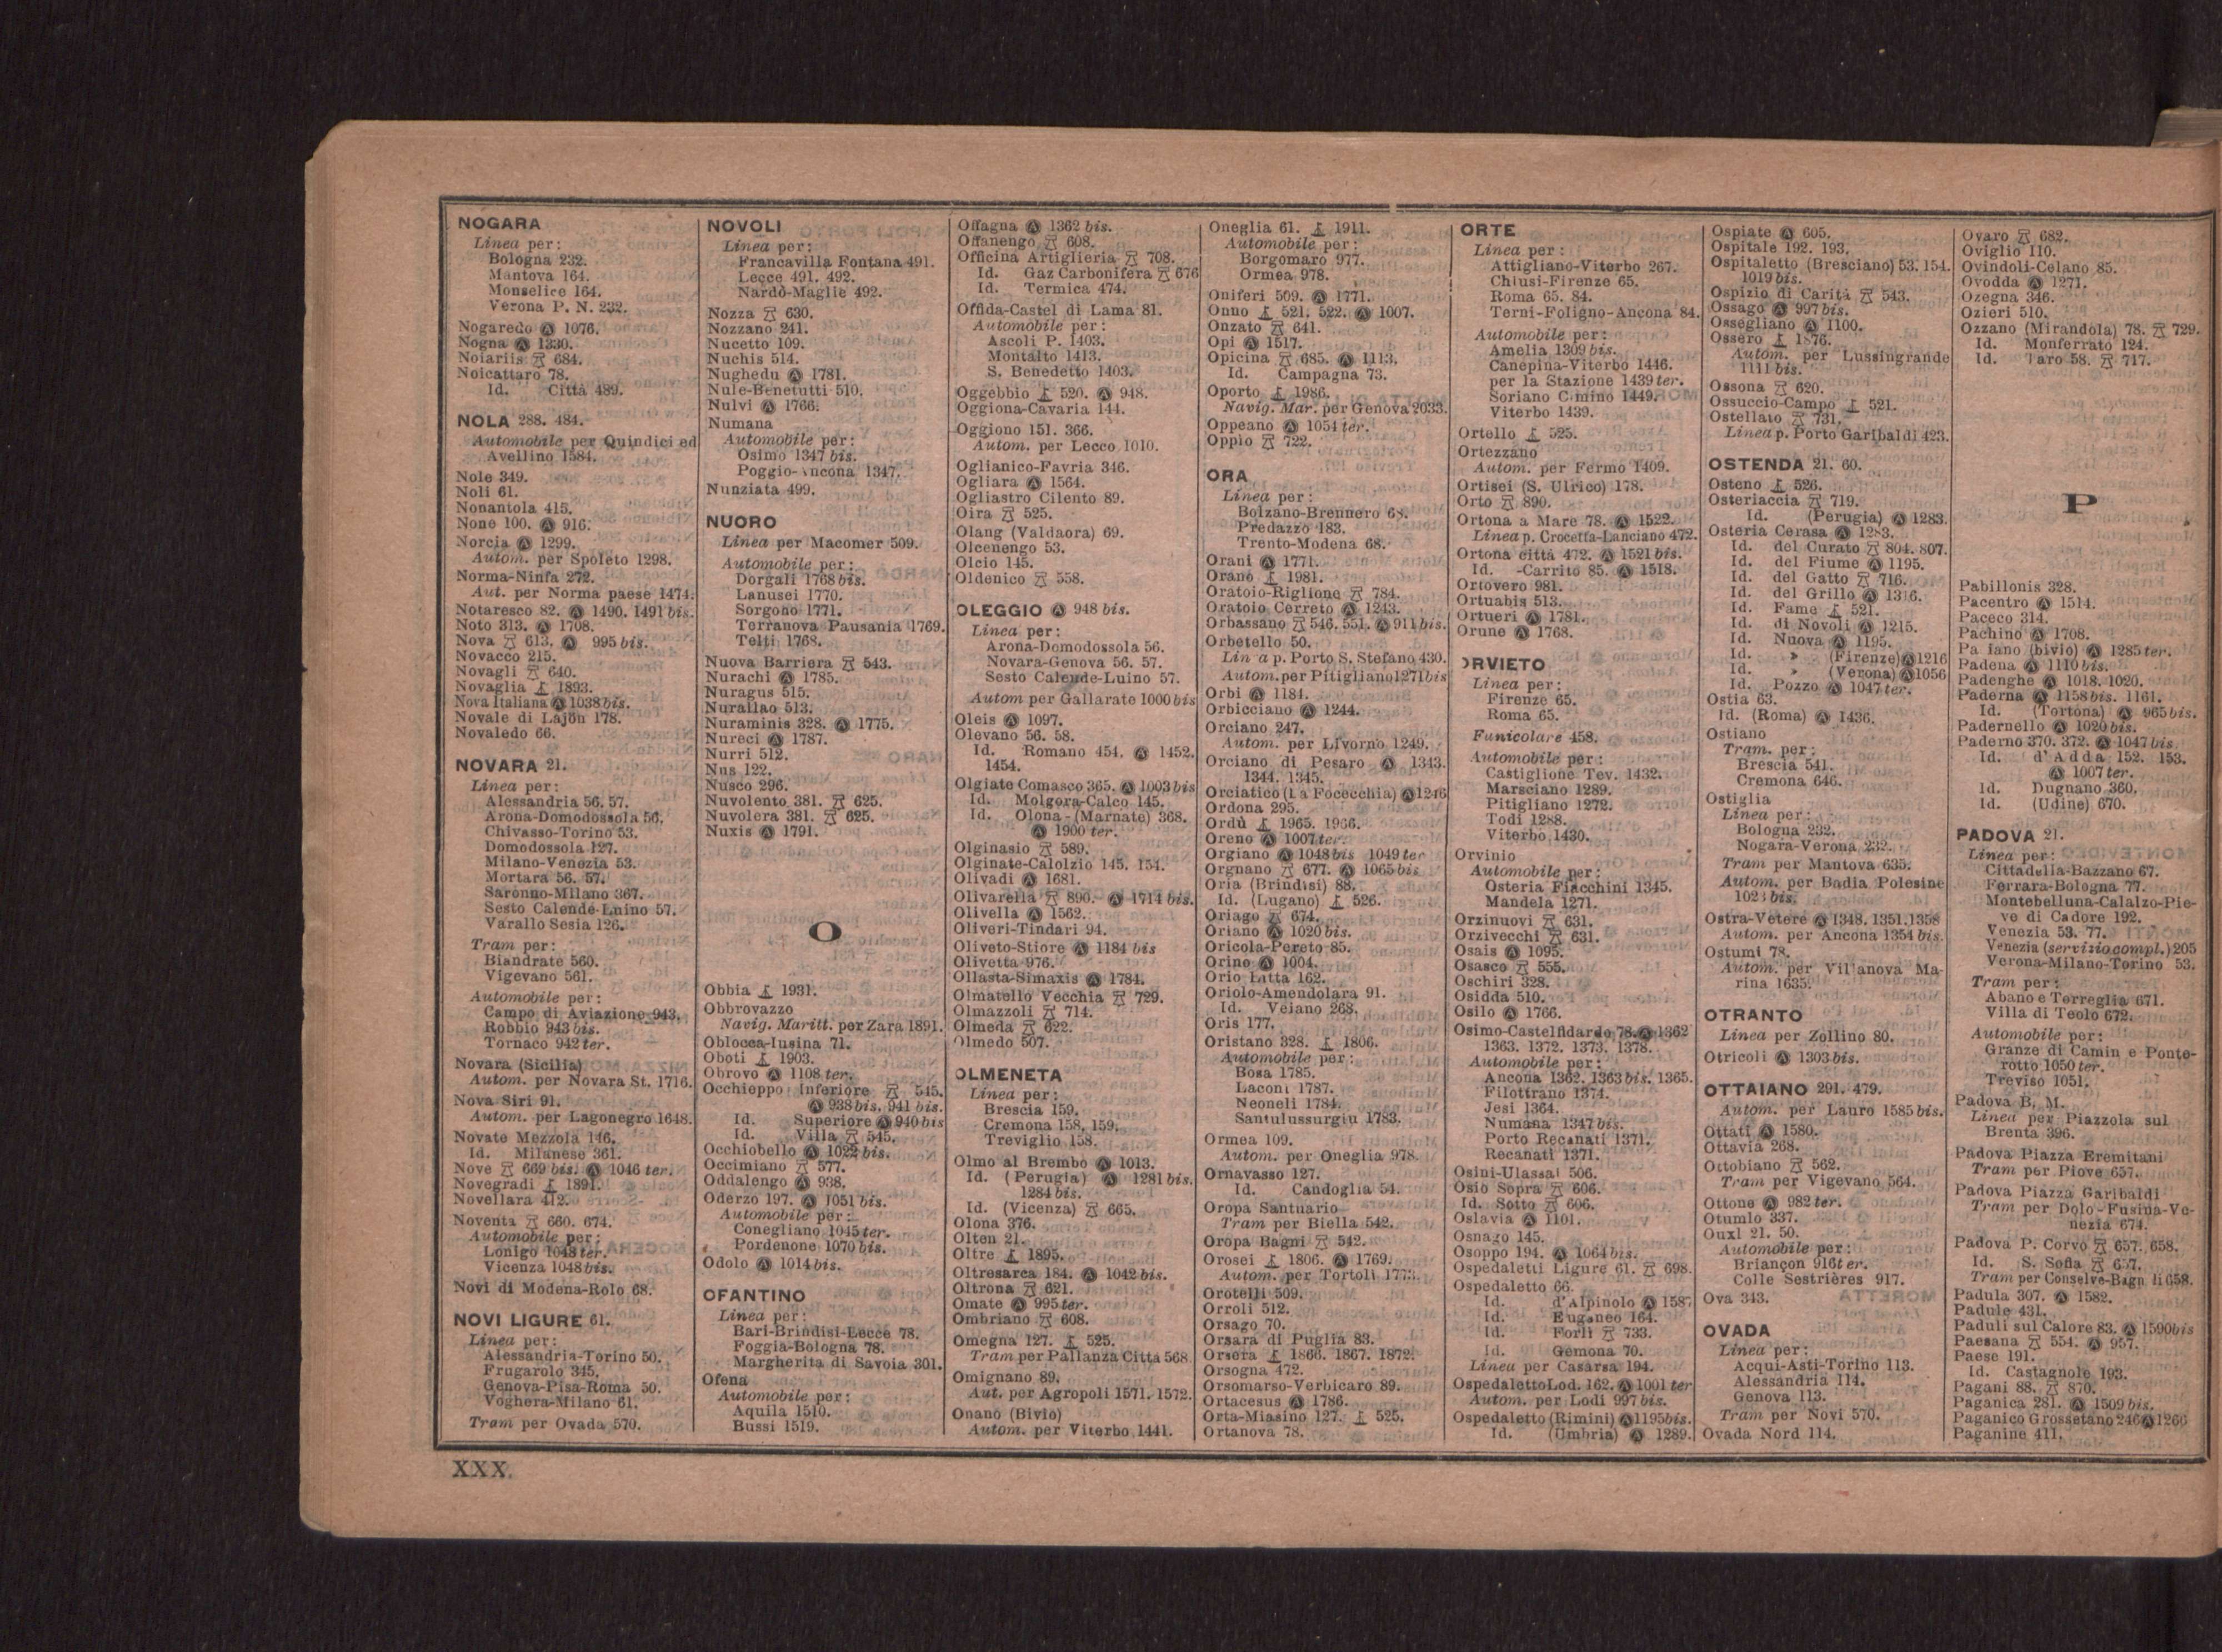 NOGARA
Linea per:
Bologna 232.
Mantova 164.
Monselice 164.
Verona P. N. 232.
Nogaredo Ⓐ 1076.
Nogna Ⓐ 1330.
Noiariis 684.
Noicattaro 78.
Id. Città 489.
NOLA 288. 484.
Automobile per Quindici ed
Avellino 1584.
Nole 349.
Noli 61.
Nonantola 415.
None 100. Ⓐ 916.
Norcia Ⓐ 1299.
Autom. per Spoleto 1298.
Norma-Ninfa 272.
Aut. per Norma paese 1474.
Notaresco 82. Ⓐ 1490. 1491 bis.
Noto 313. Ⓐ 1708.
Nova 613. Ⓐ 995 bis.
Novacco 215.
Novagli 640.
Novaglia 1893.
Nova Italiana Ⓐ 1038 bis.
Novale di Lajon 178.
Novaledo 66.
NOVARA 21.
Linea per:
Alessandria 56. 57.
Arona-Domodossola 56.
Chivasso-Torino 53.
Domodossola 127.
Milano-Venezia 53.
Mortara 56. 57.
Saronno-Milano 367.
Sesto Calende-Luino 57.
Varallo Sesia 126.
Tram per:
Biandrate 560.
Vigevano 561.
Automobile per:
Campo di Aviazione 943.
Robbio 943 bis.
Tornaco 942 ter.
Novara (Sicilia)
Autom. per Novara St. 1716.
Nova Siri 91.
Autom. per Lagonegro 1648.
Novate Mezzola 146.
Id. Milanese 361.
Nove 669 bis. Ⓐ 1046 ter.
Novegradi 1891.
Novellara 412.
Noventa 660. 674.
Automobile per:
Lonigo 1048 ter.
Vicenza 1048 bis.
Novi di Modena-Rolo 68.
NOVI LIGURE 61.
Linea per:
Alessandria-Torino 50.
Frugarolo 345.
Genova-Pisa-Roma 50.
Voghera-Milano 61.
Tram per Ovada 570.
NOVOLI
Linea per:
Francavilla Fontana 491.
Lecce 491. 492.
Nardò-Maglie 492.
Nozza 630.
Nozzano 241.
Nucetto 109.
Nuchis 514.
Nughedu Ⓐ 1781.
Nule-Benetutti 510.
Nulvi Ⓐ 1766.
Numana
Automobile per:
Osimo 1347 bis.
Poggio-Ancona 1347.
Nunziata 499.
NUORO
Linea per Macomer 509.
Automobile per:
Dorgali 1768 bis.
Lanusei 1770.
Sorgono 1771.
Terranova Pausania 1769.
Telti 1768.
Nuova Barriera 543.
Nurachi Ⓐ 1785.
Nuragus 515.
Nurallao 513.
Nuraminis 328. Ⓐ 1775.
Nureci Ⓐ 1787.
Nurri 512.
Nus 122.
Nusco 296.
Nuvolento 381. 625.
Nuvolera 381. 625.
Nuxis Ⓐ 1791.
O
Obbia 1931.
Obbrovazzo
Navig. Maritt. per Zara 1891.
Oblocca-Iusina 71.
Oboti 1903.
Obrovo Ⓐ 1108 ter.
Occhieppo Inferiore 545.
Ⓐ 938 bis. 941 bis.
Id. Superiore Ⓐ 940 bis
Id. Villa 545.
Occhiobello Ⓐ 1022 bis.
Occimiano 577.
Oddalengo Ⓐ 938.
Oderzo 197. Ⓐ 1051 bis.
Automobile per:
Conegliano 1045 ter.
Pordenone 1070 bis.
Odolo Ⓐ 1014 bis.
OFANTINO
Linea per:
Bari-Brindisi-Lecce 78.
Foggia-Bologna 78.
Margherita di Savoia 301.
Ofena
Automobile per:
Aquila 1510.
Bussi 1519.
Offagna Ⓐ 1362 bis.
Offanengo 608.
Officina Artiglieria 708.
Id. Gaz Carbonifera 676
Id. Termica 474.
Offida-Castel di Lama 81.
Automobile per:
Ascoli P. 1403.
Montalto 1413.
S. Benedetto 1403.
Oggebbio 520. Ⓐ 948.
Oggiona-Cavaria 144.
Oggiono 151. 366.
Autom. per Lecco 1010.
Oglianico-Favria 346.
Ogliara Ⓐ 1564.
Ogliastro Cilento 89.
Oira 525.
Olang (Valdaora) 69.
Olcenengo 53.
Olcio 145.
Oldenico 558.
OLEGGIO Ⓐ 948 bis.
Linea per:
Arona-Domodossola 56.
Novara-Genova 56. 57.
Sesto Calende-Luino 57.
Autom per Gallarate 1000 bis
Oleis Ⓐ 1097.
Olevano 56. 58.
Id. Romano 454. Ⓐ 1452.
1454.
Olgiate Comasco 365. Ⓐ 1003 bis
Id. Molgora-Calco 145.
Id. Olona-(Marnate) 368.
Ⓐ 1900 ter.
Olginasio 589.
Olginate-Calolzio 145. 154.
Olivadi Ⓐ 1681.
Olivarella 890. Ⓐ 1714 bis.
Olivella Ⓐ 1562.
Oliveri-Tindari 94.
Oliveto-Stiore Ⓐ 1184 bis
Olivetta 976.
Ollasta-Simaxis Ⓐ 1784.
Olmatello Vecchia 729.
Olmazzoli 714.
Olmeda 622.
Olmedo 507.
OLMENETA
Linea per:
Brescia 159.
Cremona 158. 159.
Treviglio 158.
Olmo al Brembo Ⓐ 1013.
Id. (Perugia) Ⓐ 1281 bis.
1284 bis.
Id. (Vicenza) 665.
Olona 376.
Olten 21.
Oltre 1895.
Oltresarca 184. Ⓐ 1042 bis.
Oltrona 621.
Omate Ⓐ 995 ter.
Ombriano 608.
Omegna 127. 525.
Tram per Pallanza Città 568
Omignano 89.
Aut. per Agropoli 1571. 1572.
Onano (Bivio)
Autom. per Viterbo 1441.
Oneglia 61. 1911.
Automobile per:
Borgomaro 977.
Ormea 978.
Oniferi 509. Ⓐ 1771.
Onno 521. 522. Ⓐ 1007.
Onzato 641.
Opi Ⓐ 1517.
Opicina 685. Ⓐ 1113.
Id. Campagna 73.
Oporto 1986.
Navig. Mar. per Genova 2033.
Oppeano Ⓐ 1054 ter.
Oppio 722.
ORA
Linea per:
Bolzano-Brennero 68.
Predazzo 183.
Trento-Modena 68.
Orani Ⓐ 1771.
Orano 1981.
Oratoio-Riglione 784.
Oratoio Cerreto Ⓐ 1243.
Orbassano 546. 551. Ⓐ 911 bis.
Orbetello 50.
Lin a p. Porto S. Stefano 430.
Autom. per Pitigliano 1271 bis
Orbi Ⓐ 1184.
Orbicciano Ⓐ 1244.
Orciano 247.
Autom. per Livorno 1249.
Orciano di Pesaro Ⓐ 1343.
1344. 1345.
Orciatico (La Focecchia) Ⓐ 1246
Ordona 295.
Ordù 1965. 1966.
Oreno Ⓐ 1007 ter.
Orgiano Ⓐ 1048 bis 1049 ter
Orgnano 677. Ⓐ 1065 bis
Oria (Brindisi) 88.
Id. (Lugano) 526.
Oriago 674.
Oriano Ⓐ 1020 bis.
Oricola-Pereto 85.
Orino Ⓐ 1004.
Orio Litta 162.
Oriolo-Amendolara 91.
Id. Veiano 268.
Oris 177.
Oristano 328. 1806.
Automobile per:
Bosa 1785.
Laconi 1787.
Neoneli 1784.
Santulussurgiu 1783.
Ormea 109.
Autom. per Oneglia 978.
Ornavasso 127.
Id. Candoglia 54.
Oropa Santuario
Tram per Biella 542.
Oropa Bagni 542.
Orosei 1806. Ⓐ 1769.
Autom. per Tortoli 1773.
Orotelli 509.
Orroli 512.
Orsago 70.
Orsara di Puglia 83.
Orsera 1866. 1867. 1872.
Orsogna 472.
Orsomarso-Verbicaro 89.
Ortacesus Ⓐ 1786.
Orta-Miasino 127. 525.
Ortanova 78.
ORTE
Linea per:
Attigliano-Viterbo 267.
Chiusi-Firenze 65.
Roma 65. 84.
Terni-Foligno-Ancona 84.
Automobile per:
Amelia 1309 bis.
Canepina-Viterbo 1446.
per la Stazione 1439 ter.
Soriano Cimino 1449.
Viterbo 1439.
Ortello 525.
Ortezzano
Autom. per Fermo 1409.
Ortisei (S. Ulrico) 178.
Orto 890.
Ortona a Mare 78. Ⓐ 1522.
Linea p. Crocetta-Lanciano 472.
Ortona città 472. Ⓐ 1521 bis.
Id. -Carrito 85. Ⓐ 1518.
Ortovero 981.
Ortuabis 513.
Ortueri Ⓐ 1781.
Orune Ⓐ 1768.
ORVIETO
Linea per:
Firenze 65.
Roma 65.
Funicolare 458.
Automobile per:
Castiglione Tev. 1432.
Marsciano 1289.
Pitigliano 1272.
Todi 1288.
Viterbo 1430.
Orvinio
Automobile per:
Osteria Fiacchini 1345.
Mandela 1271.
Orzinuovi 631.
Orzivecchi 631.
Osais Ⓐ 1095.
Osasco 555.
Oschiri 328.
Osidda 510.
Osilo Ⓐ 1766.
Osimo-Castelfidardo 78. Ⓐ 1362
1363. 1372. 1373. 1378.
Automobile per:
Ancona 1362. 1363 bis. 1365.
Filottrano 1374.
Jesi 1364.
Numana 1347 bis.
Porto Recanati 1371.
Recanati 1371.
Osini-Ulassai 506.
Osio Sopra 606.
Id. Sotto 606.
Oslavia Ⓐ 1101.
Osnago 145.
Osoppo 194. Ⓐ 1064 bis.
Ospedaletti Ligure 61. 698.
Ospedaletto 66.
Id. d'Alpinolo Ⓐ 1587
Id. Euganeo 164.
Id. Forlì 733.
Id. Gemona 70.
Linea per Casarsa 194.
Ospedaletto Lod. 162. Ⓐ 1001 ter
Autom. per Lodi 997 bis.
Ospedaletto (Rimini) Ⓐ 1195 bis.
Id. (Umbria) Ⓐ 1289.
Ospiate Ⓐ 605.
Ospitale 192. 193.
Ospitaletto (Bresciano) 53. 154.
1019 bis.
Ospizio di Carità 543.
Ossago Ⓐ 997 bis.
Ossegliano Ⓐ 1100.
Ossero 1876.
Autom. per Lussingrande
1111 bis.
Ossona 620.
Ossuccio-Campo 521.
Ostellato 731.
Linea p. Porto Garibaldi 423.
OSTENDA 21. 60.
Osteno 526.
Osteriaccia 719.
Id. (Perugia) Ⓐ 1283.
Osteria Cerasa Ⓐ 1283.
Id. del Curato 804. 807.
Id. del Fiume Ⓐ 1195.
Id. del Gatto 716.
Id. del Grillo Ⓐ 1316.
Id. Fame 521.
Id. di Novoli Ⓐ 1215.
Id. Nuova Ⓐ 1195.
Id. » (Firenze) Ⓐ 1216
Id. » (Verona) Ⓐ 1056
Id. Pozzo Ⓐ 1047 ter.
Ostia 63.
Id. (Roma) Ⓐ 1436.
Ostiano
Tram. per:
Brescia 541.
Cremona 646.
Ostiglia
Linea per:
Bologna 232.
Nogara-Verona 232.
Tram per Mantova 635.
Autom. per Badia Polesine
1023 bis.
Ostra-Vetere Ⓐ 1348. 1351. 1358
Autom. per Ancona 1354 bis.
Ostuni 78.
Autom. per Villanova Ma-
rina 1635.
OTRANTO
Linea per Zollino 80.
Otricoli Ⓐ 1303 bis.
OTTAIANO 291. 479.
Autom. per Lauro 1585 bis.
Ottati Ⓐ 1580.
Ottavia 268.
Ottobiano 562.
Tram per Vigevano 564.
Ottone Ⓐ 982 ter.
Otumlo 337.
Oulx 21. 50.
Automobile per:
Briançon 916 ter.
Colle Sestrières 917.
Ova 343.
OVADA
Linea per:
Acqui-Asti-Torino 113.
Alessandria 114.
Genova 113.
Tram per Novi 570.
Ovada Nord 114.
Ovaro 682.
Oviglio 110.
Ovindoli-Celano 85.
Ovodda Ⓐ 1271.
Ozegna 346.
Ozieri 510.
Ozzano (Mirandola) 78. 729.
Id. Monferrato 124.
Id. Taro 58. 717.
P
Pabillonis 328.
Pacentro Ⓐ 1514.
Paceco 314.
Pachino Ⓐ 1708.
Pa iano (bivio) Ⓐ 1285 ter.
Padena Ⓐ 1110 bis.
Padenghe Ⓐ 1018. 1020.
Paderna Ⓐ 1158 bis. 1161.
Id. (Tortona) Ⓐ 965 bis.
Padernello Ⓐ 1020 bis.
Paderno 370. 372. Ⓐ 1047 bis
Id. d'Adda 152. 153.
Ⓐ 1007 ter.
Id. Dugnano 360.
Id. (Udine) 670.
PADOVA 21.
Linea per:
Cittadella-Bazzano 67.
Ferrara-Bologna 77.
Montebelluna-Calalzo-Pie-
ve di Cadore 192.
Venezia 53. 77.
Venezia (servizio compl.) 205
Verona-Milano-Torino 53.
Tram per:
Abano e Torreglia 671.
Villa di Teolo 672.
Automobile per:
Granze di Camin e Ponte-
rotto 1050 ter.
Treviso 1051.
Padova B. M.
Linea per Piazzola sul
Brenta 396.
Padova Piazza Eremitani
Tram per Piove 657.
Padova Piazza Garibaldi
Tram per Dolo-Fusina-Ve-
nezia 674.
Padova P. Corvo 657. 658.
Id. S. Sofia 657.
Tram per Conselve-Bagnoli 658.
Padula 307. Ⓐ 1582.
Padule 431.
Paduli sul Calore 83. Ⓐ 1590 bis
Paesana 554. Ⓐ 957.
Paese 191.
Id. Castagnole 193.
Pagani 88. 870.
Paganica 281. Ⓐ 1509 bis.
Paganico Grossetano 246 Ⓐ 1266
Paganine 411.
XXX.